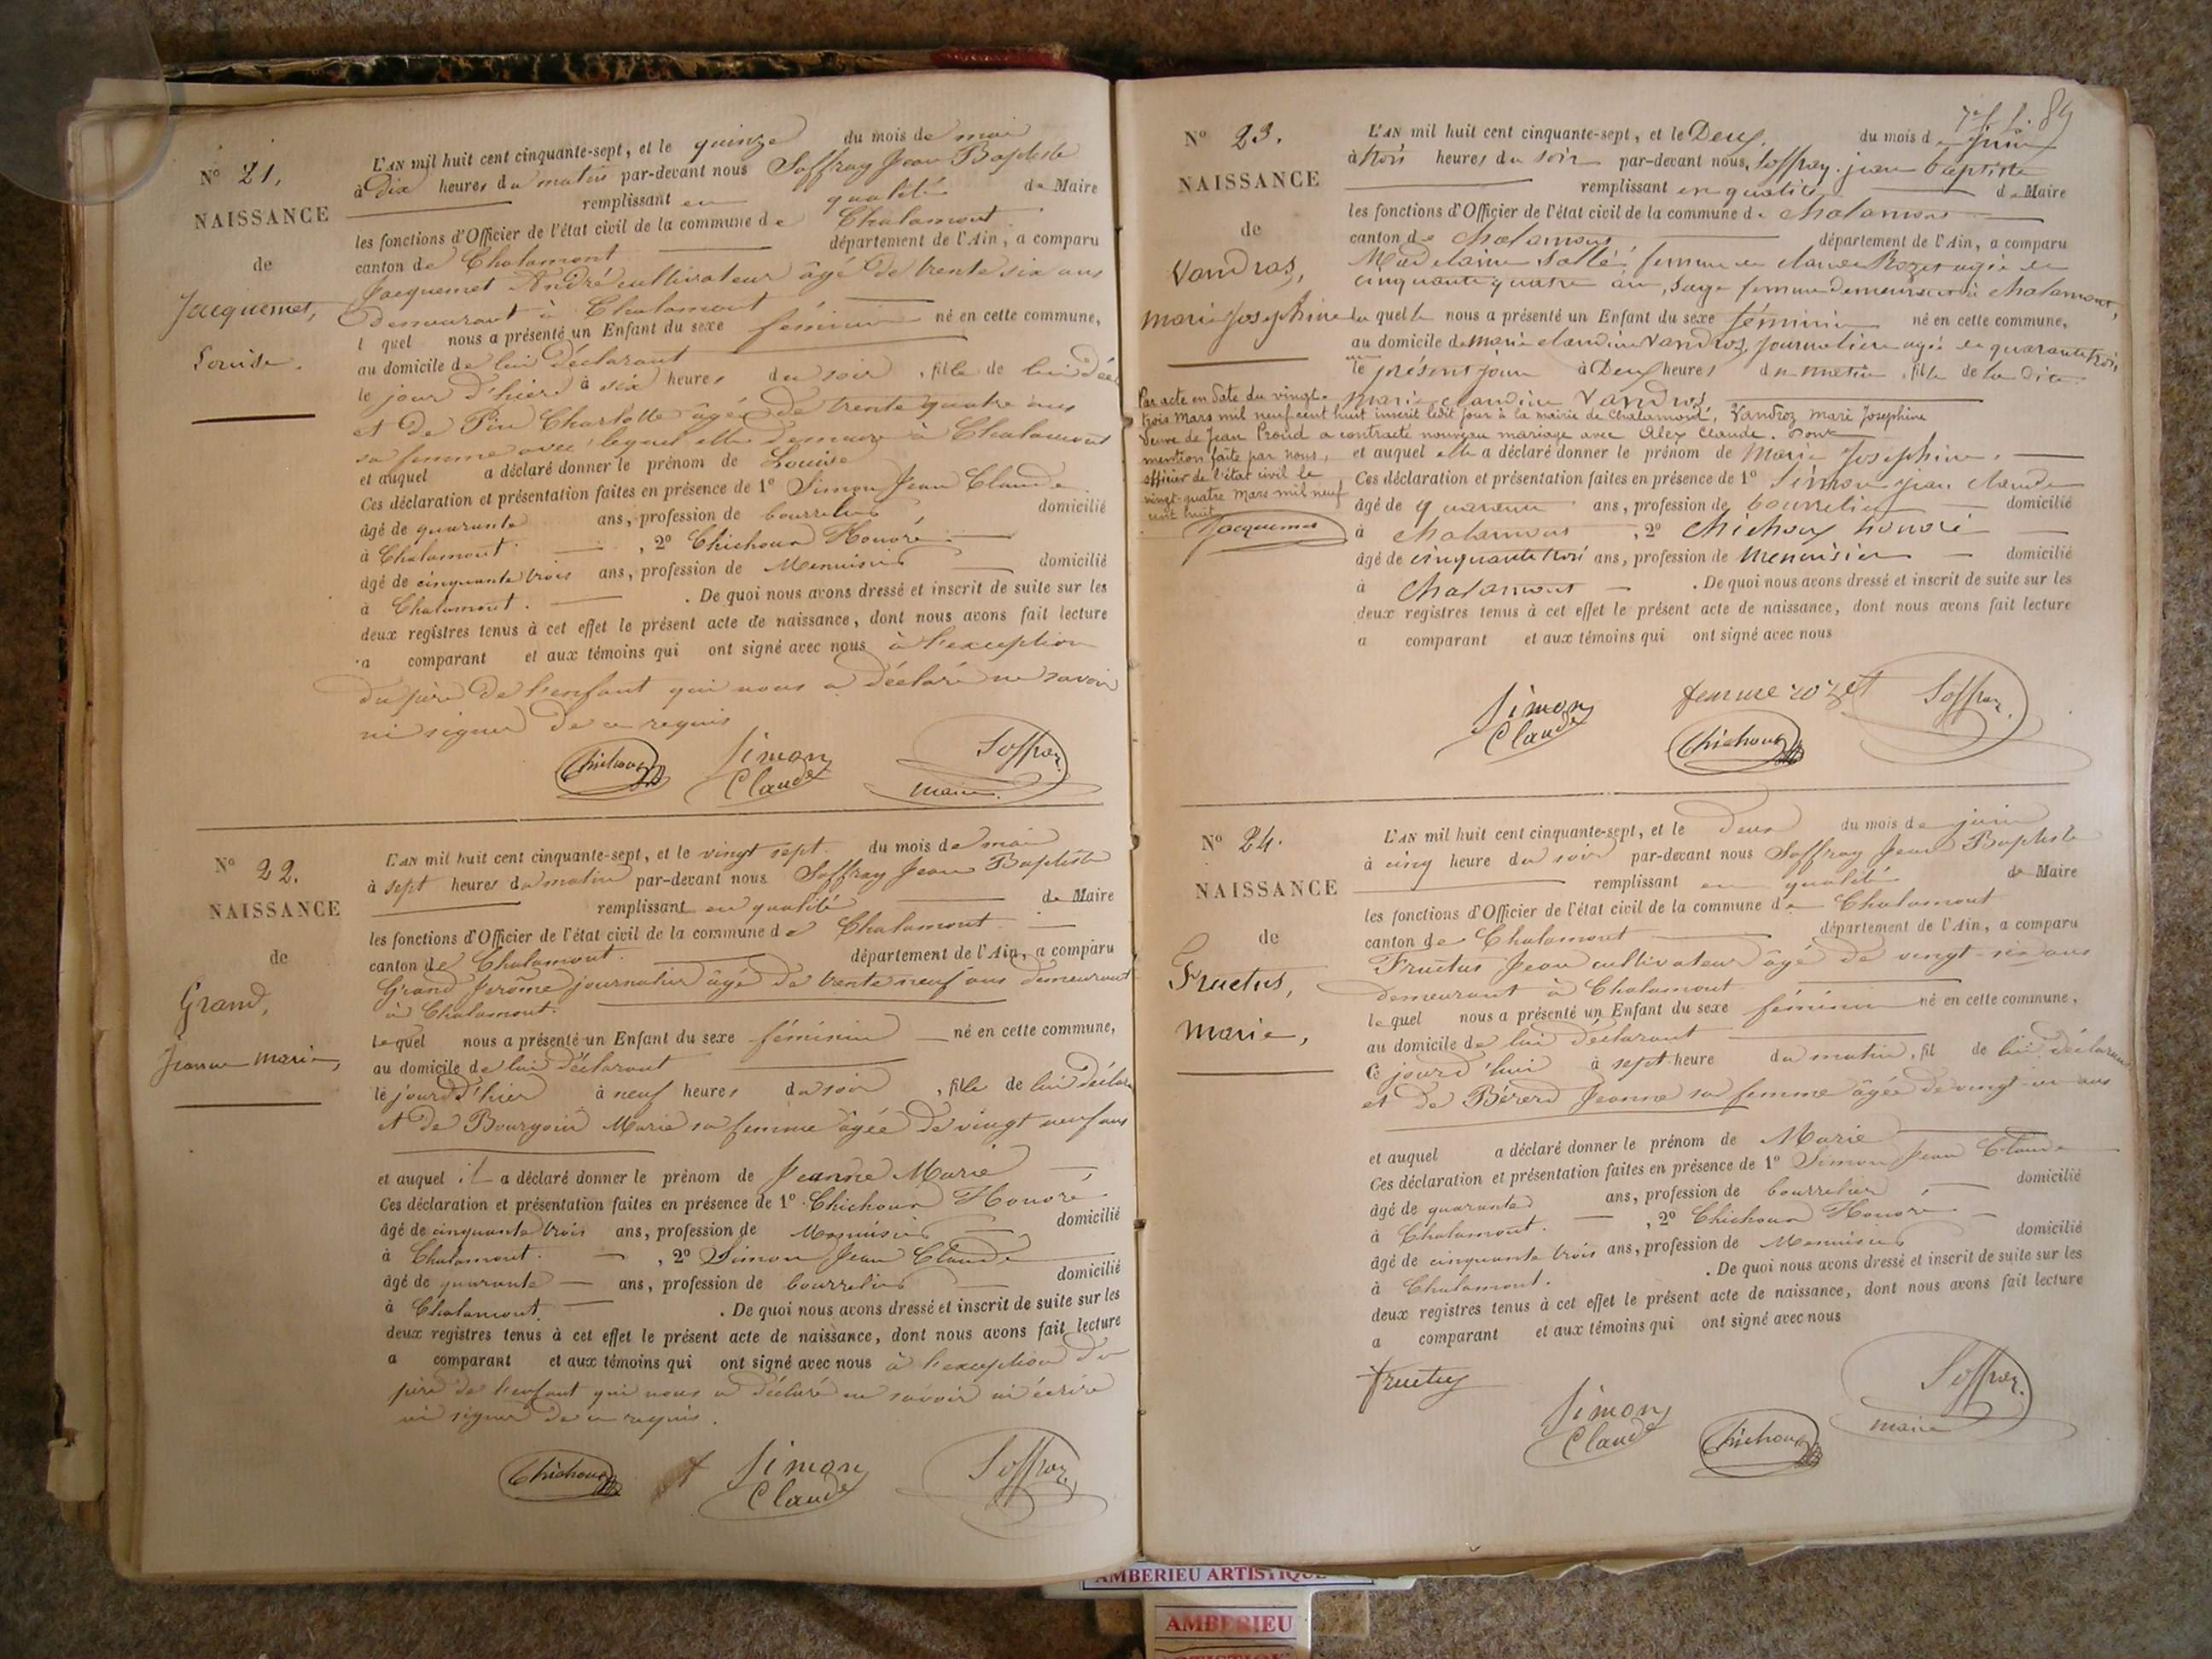 N° 21.
NAISSANCE
de
Jacquemet,
Louise.
L'AN mil huit cent cinquante-sept, et le quinze du mois de mai
à Dix heures du matin par-devant nous Soffray Jean Baptiste
remplissant en qualité de Maire
les fonctions d'Officier de l'état civil de la commune de Chalamont
canton de Chalamont département de l'Ain, a comparu
Jacquemet André cultivateur âgé de trente six ans
demeurant à Chalamont
l quel nous a présenté un Enfant du sexe féminin né en cette commune,
au domicile de lui déclarant
le jour d'hier à six heures du soir, fille de lui décl
et de Pin Charlotte âgée de trente quatre ans
sa femme avec lequel elle demeure à Chalamont
et auquel a déclaré donner le prénom de Louise
Ces déclaration et présentation faites en présence de 1° Simon Jean Claude
âgé de quarante ans, profession de bourrelier domicilié
à Chalamont. , 2° Chichoux Honoré
âgé de cinquante trois ans, profession de Menuisier domicilié
à Chalamont. . De quoi nous avons dressé et inscrit de suite sur les
deux registres tenus à cet effet le présent acte de naissance, dont nous avons fait lecture
a comparant et aux témoins qui ont signé avec nous à l'exception
du père de l'enfant qui nous a déclaré ne savoir
ni signer de ce requis
Chichoux Simon Claude Soffray maire
N° 22.
NAISSANCE
de
Grand,
Jeanne Marie,
L'AN mil huit cent cinquante-sept, et le vingt sept. du mois de mai
à sept heures du matin par-devant nous Soffray Jean Baptiste
remplissant en qualité de Maire
les fonctions d'Officier de l'état civil de la commune de Chalamont
canton de Chalamont. département de l'Ain, a comparu
Grand Jerome journalier âgé de trente neuf ans demeurant
à Chalamont.
lequel nous a présenté un Enfant du sexe féminin né en cette commune,
au domicile de lui déclarant
le jour d'hier à neuf heures du soir, fille de lui déclar
et de Bourgoin Marie sa femme âgée de vingt neuf ans
et auquel il a déclaré donner le prénom de Jeanne Marie
Ces déclaration et présentation faites en présence de 1° Chichoux Honoré
âgé de cinquante trois ans, profession de Menuisier domicilié
à Chalamont. , 2° Simon Jean Claude
âgé de quarante ans, profession de bourrelier domicilié
à Chalamont. . De quoi nous avons dressé et inscrit de suite sur les
deux registres tenus à cet effet le présent acte de naissance, dont nous avons fait lecture
a comparant et aux témoins qui ont signé avec nous à l'exception du
père de l'enfant qui nous a déclaré ne savoir ni écrire
ni signer de ce requis.
Chichoux Simon Claude Soffray
84
N° 23.
NAISSANCE
de
Vandros,
marie Josephine
L'AN mil huit cent cinquante-sept, et le Deux, du mois de Juin
à trois heures du soir par-devant nous, Soffray jean baptiste
remplissant en qualité de Maire
les fonctions d'Officier de l'état civil de la commune de chalamont
canton de chalamont département de l'Ain, a comparu
Madelaine Sallé, femme de claude Rozet agée de
cinquante quatre ans, sage femme demeurant à chalamont,
la quelle nous a présenté un Enfant du sexe féminin né en cette commune,
au domicile de marie claudine Vandros, journaliere agée de quarante trois
ans
le présent jour à Deux heures du matin, fille de la dite
marie claudine Vandros
Par acte en date du vingt-
trois Mars mil neuf cent huit inscrit ledit jour à la mairie de Chalamont, Vandroz Marie Josephine
Veuve de Jean Proud a contracté nouveau mariage avec Alex Claude. Dont
mention faite par nous,
officier de l'état civil le
vingt-quatre Mars mil neuf
cent huit
Jacquemet
et auquel elle a déclaré donner le prénom de Marie Josephine.
Ces déclaration et présentation faites en présence de 1° Simon jean claude
âgé de quarante ans, profession de bourrelier domicilié
à chalamont , 2° Chichoux honoré
âgé de cinquante trois ans, profession de Menuisier domicilié
à Chalamont . De quoi nous avons dressé et inscrit de suite sur les
deux registres tenus à cet effet le présent acte de naissance, dont nous avons fait lecture
a comparant et aux témoins qui ont signé avec nous
Simon Claude femme rozet Chichoux Soffray
N° 24.
NAISSANCE
de
Fructus,
Marie,
L'AN mil huit cent cinquante-sept, et le deux du mois de juin
à cinq heure du soir par-devant nous Soffray Jean Baptiste
remplissant en qualité de Maire
les fonctions d'Officier de l'état civil de la commune de Chalamont
canton de Chalamont département de l'Ain, a comparu
Fructus Jean cultivateur âgé de vingt-six ans
demeurant à Chalamont
lequel nous a présenté un Enfant du sexe féminin né en cette commune,
au domicile de lui déclarant
Ce jourd'hui à sept heure du matin, fil de lui déclarant
et de Bérerd Jeanne sa femme âgée de vingt un ans
et auquel a déclaré donner le prénom de Marie
Ces déclaration et présentation faites en présence de 1° Simon Jean Claude
âgé de quarante ans, profession de bourrelier, domicilié
à Chalamont. , 2° Chichoux Honoré
âgé de cinquante trois ans, profession de Menuisier domicilié
à Chalamont. . De quoi nous avons dressé et inscrit de suite sur les
deux registres tenus à cet effet le présent acte de naissance, dont nous avons fait lecture
a comparant et aux témoins qui ont signé avec nous
fructus Simon Claude Chichoux Soffray maire
AMBERIEU ARTISTIQUE
AMBERIEU